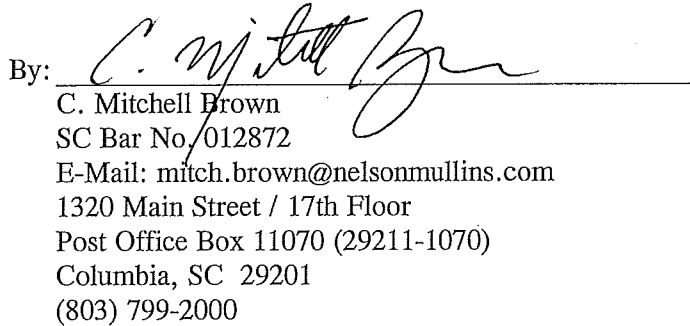 By: C. Mitchell Brown
C. Mitchell Brown
SC Bar No. 012872
E-Mail: mitch.brown@nelsonmullins.com
1320 Main Street / 17th Floor
Post Office Box 11070 (29211-1070)
Columbia, SC 29201
(803) 799-2000